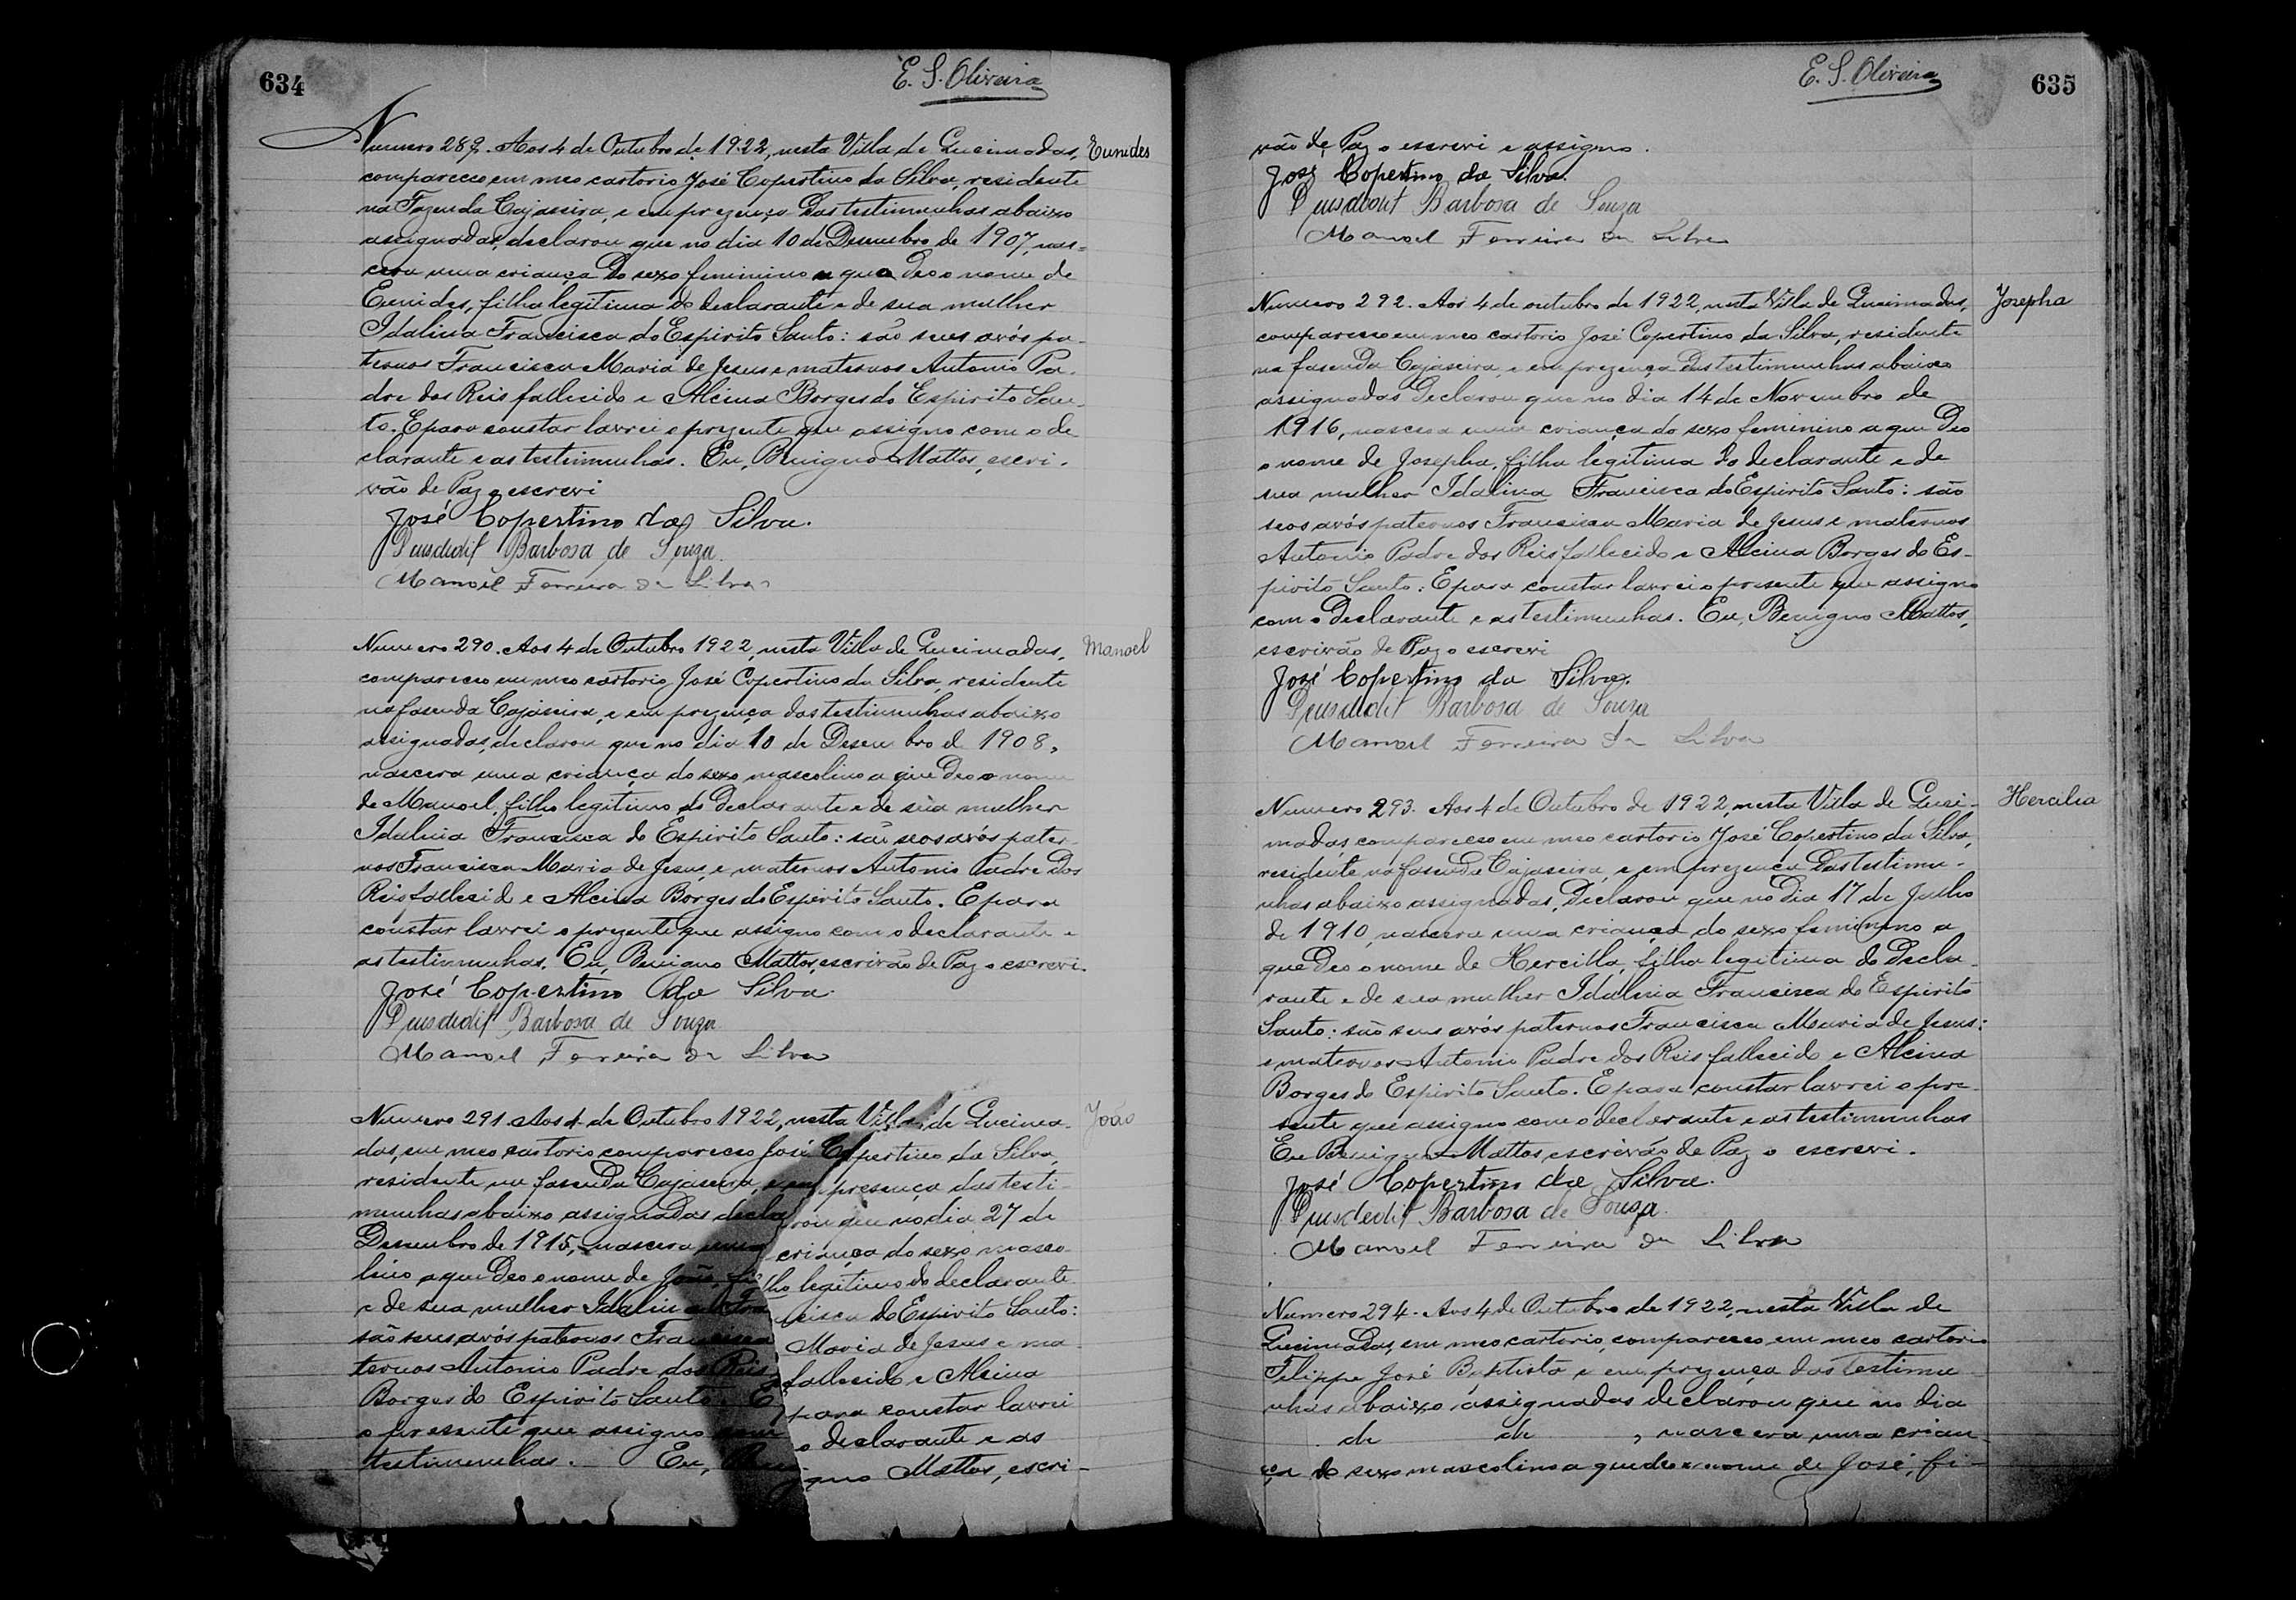 634
E. S. Oliveira
Numero 289. Aos 4 de Outubro de 1922, nesta Villa de Queimadas, Eunides
compareceo em meo cartorio José Copertino da Silva, residente
na Fazenda Cajaseira, e em prezença das testimunhas abaixo
assignadas, declarou que no dia 10 de Desembro de 1907, nas-
cera uma criança do sexo feminino a qua deo o nome de
Eunides, filha legitima do declarante e de sua mulher
Idalina Francisca do Espirito Santo: são seus avós pa-
ternos Francisca Maria de Jesus e maternos Antonio Pa-
dre dos Reis fallecido e Alcina Borges do Espirito San-
to. E para constar lavrei o prezente que assigno com o de
clarante e as testimunhas. Eu, Benigno Mattos, escri-
vão de Paz o escrevi
José Copertino da Silva.
Deusdedit Barbosa de Souza
Manoel Ferreira da Silva
Numero 290. Aos 4 de Outubro 1922, nesta Villa de Queimadas, Manoel
compareceo em meo cartorio José Copertino da Silva, residente
na fasenda Cajaseira, e em prezença das testimunhas abaixo
assignadas, declarou que no dia 10 de Desembro d 1908,
nascera uma criança do sexo mascolino a que deo o nome
de Manoel, filho legitimo do declarante e de sua mulher
Idalina Francisca do Espirito Santo: são seos avós pater-
nos Francisca Maria de Jesus, e maternos Antonio Padre dos
Reis, fallecid e Alcina Borges do Espirito Santo. E para
constar lavrei o prezente que assigno com o declarante e
as testimunhas. Eu, Benigno Mattos, escrivão de Paz o escrevi.
José Copertino da Silva.
Deusdedit Barbosa de Souza
Manoel Ferreira da Silva
Numero 291. Aos 4 de Outubro 1922, nesta Villa de Queima- João
das, em meo cartorio compareceo José Copertino da Silva,
residente na fasenda Cajaseira, e em presença das testi-
munhas abaixo assignadas declarou que no dia 27 de
Desembro de 1915, nascera uma criança do sexo masco-
lino a que deo o nome de João, filho legitimo do declarante
e de sua mulher Idalina Francisca do Espirito Santo:
são seus avós paternos Francisca Maria de Jesus e ma-
ternos Antonio Padre dos Reis, fallecido e Alcina
Borges do Espirito Santo. E para constar lavrei
o presente que assigno com o declarante e as
testimunhas. Eu, Benigno Mattos, escri-
E. S. Oliveira
635
vão de Paz o escrevi e assigno.
José Copertino da Silva.
Deusdedit Barbosa de Souza
Manoel Ferreira da Silva
Numero 292. Aos 4 de outubro de 1922, nesta Villa de Queimadas, Josepha
compareceo em meo cartorio José Copertino da Silva, residente
na fasenda Cajaseira, e em prezença das testimunhas abaixo
assignadas declarou que no dia 14 de Novembro de
1916, nasceo a uma criança do sexo feminino a que deo
o nome de Josepha, filha legitima do declarante e de
sua mulher Idalina Francisca do Espirito Santo: são
seos avós paternos Francisca Maria de Jesus e maternos
Antonio Padre dos Reis fallecido e Alcina Borges do Es-
pirito Santo: E para constar lavrei o presente que assigno
com o declarante e as testimunhas. Eu, Benigno Mattos,
escrivão de Paz o escrevi
José Copertino da Silva.
Deusdedit Barbosa de Souza
Manoel Ferreira da Silva
Numero 293. Aos 4 de Outubro de 1922, nesta Villa de Quei- Hercilia
madas, compareceo em meo cartorio José Copertino da Silva,
residente na fasenda Cajaseira, e em prezença das testimu-
nhas abaixo assignadas, declarou que no dia 17 de Julho
de 1910, nascera uma criança do sexo feminino a
que deo o nome de Hercilla, filha legitima do decla-
rante e de sua mulher Idalina Francisca do Espirito
Santo: são seus avós paternos Francisca Maria de Jesus:
e maternos Antonio Padre dos Reis fallecido e Alcina
Borges do Espirito Santo. E para constar lavrei o pre-
sente que assigno com o declarante e as testimunhas
Eu Benigno Mattos, escrivão de Paz o escrevi.
José Copertino da Silva.
Deusdedit Barbosa de Souza.
Manoel Ferreira da Silva
Numero 294. Aos 4 de Outubro de 1922, nesta Villa de
Queimadas, em meo cartorio, compareceo em meo cartorio
Filippe José Baptista e em prezença das testimu
nhas abaixo assignadas declarou que no dia
de de , nascera uma crian-
ça do sexo mascolino a que deo o nome de José, fi-